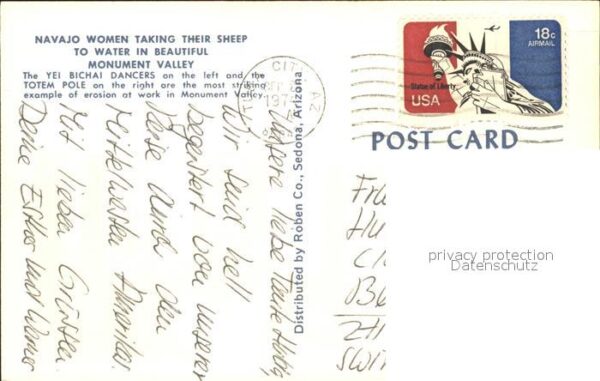 NAVAJO WOMEN TAKING THEIR SHEEP
TO WATER IN BEAUTIFUL
MONUMENT VALLEY
The YEI BICHAI DANCERS on the left and the
TOTEM POLE on the right are the most striking
example of erosion at work in Monument Valley.
CITY AZ
197
18c
AIRMAIL
Statue of Liberty
USA
POST CARD
Distributed by Roben Co., Sedona, Arizona
Unsere liebe Tante
Wir sind hell
begeistert von unserer
Reise durch den
Mittelwesten Amerikas.
Mit lieben Grüssen
Deine Esther und Werner
SWIT
privacy protection
Datenschutz